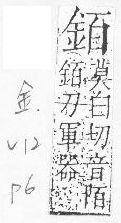 銆
莫白切音陌
銆刃軍器
金.
V12
p6